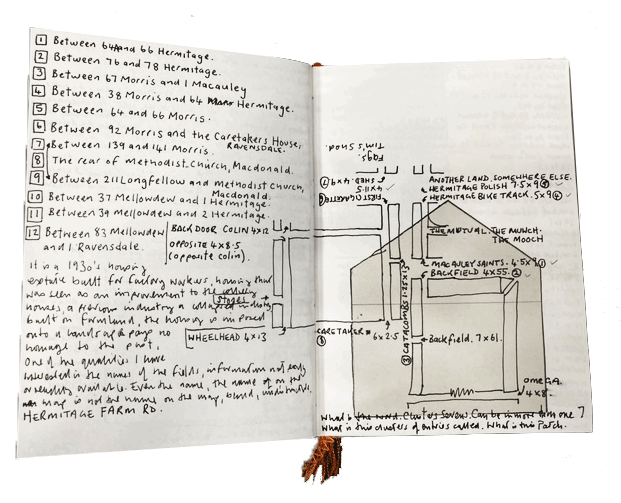 1 Between 64 and 66 Hermitage.
2 Between 76 and 78 Hermitage.
3 Between 67 Morris and 1 Macauley
4 Between 38 Morris and 64 Hermitage.
5 Between 64 and 66 Morris.
6 Between 92 Morris and the Caretakers House,
RAVENSDALE.
7 Between 139 and 141 Morris.
8 The rear of methodist Church, Macdonald.
9 Between 211 Longfellow and methodist Church,
Macdonald.
10 Between 37 Mellowdew and 1 Hermitage.
11 Between 39 mellowdew and 2 Hermitage.
12 Between 83 Mellowdew
and 1 Ravensdale.
BACK DOOR COLIN 4x12
OPPOSITE 4x8.5
(opposite colin).
It is a 1930's housing
estate built for factory workers, housing that
was seen as an improvement to the colliery
stores
houses, a previous industry, a collapsed industry
built on farmland, the housing is imposed
onto a landscape pays no
homage to the past,
WHEELHEAD 4x13
One of the qualities I have
interested in the names of the fields, information not easily
or readily available. Even the name, the name of on the
map is not the name on the map, blend,
HERMITAGE FARM RD.
Fags.
TIM'S Shod.
SHED. 4x9
4x11.5
FIRST CIGARETTE
ANOTHER LAND. SOMEWHERE ELSE.
HERMITAGE POLISH 7.5x9
HERMITAGE BIKE TRACK. 5x9 4
THE MUTUAL. THE MUNCH.
THE MOOCH
MACAULEY SAINTS. 4.5x9 1
BACKFIELD 4x55. 2
CATACOMBS 1.25x13
CARETAKER
6x2.5
Backfield. 7x61.
OMEGA
4x8.
What is the word. Clusters Sevens. Can be more than one 7
What is this clusters of entries called. What is this Patch.